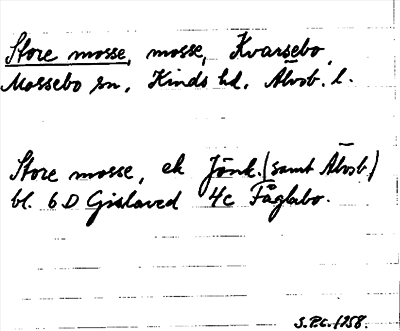 Store mosse, mosse, Kvarsebo,
Mossebo sn, Kinds hd, Älvsb. l.
Store mosse, ek Jönk. (samt Älvsb.)
bl. 6D Gislaved 4c Fåglabo.
S.P.C. 1758.